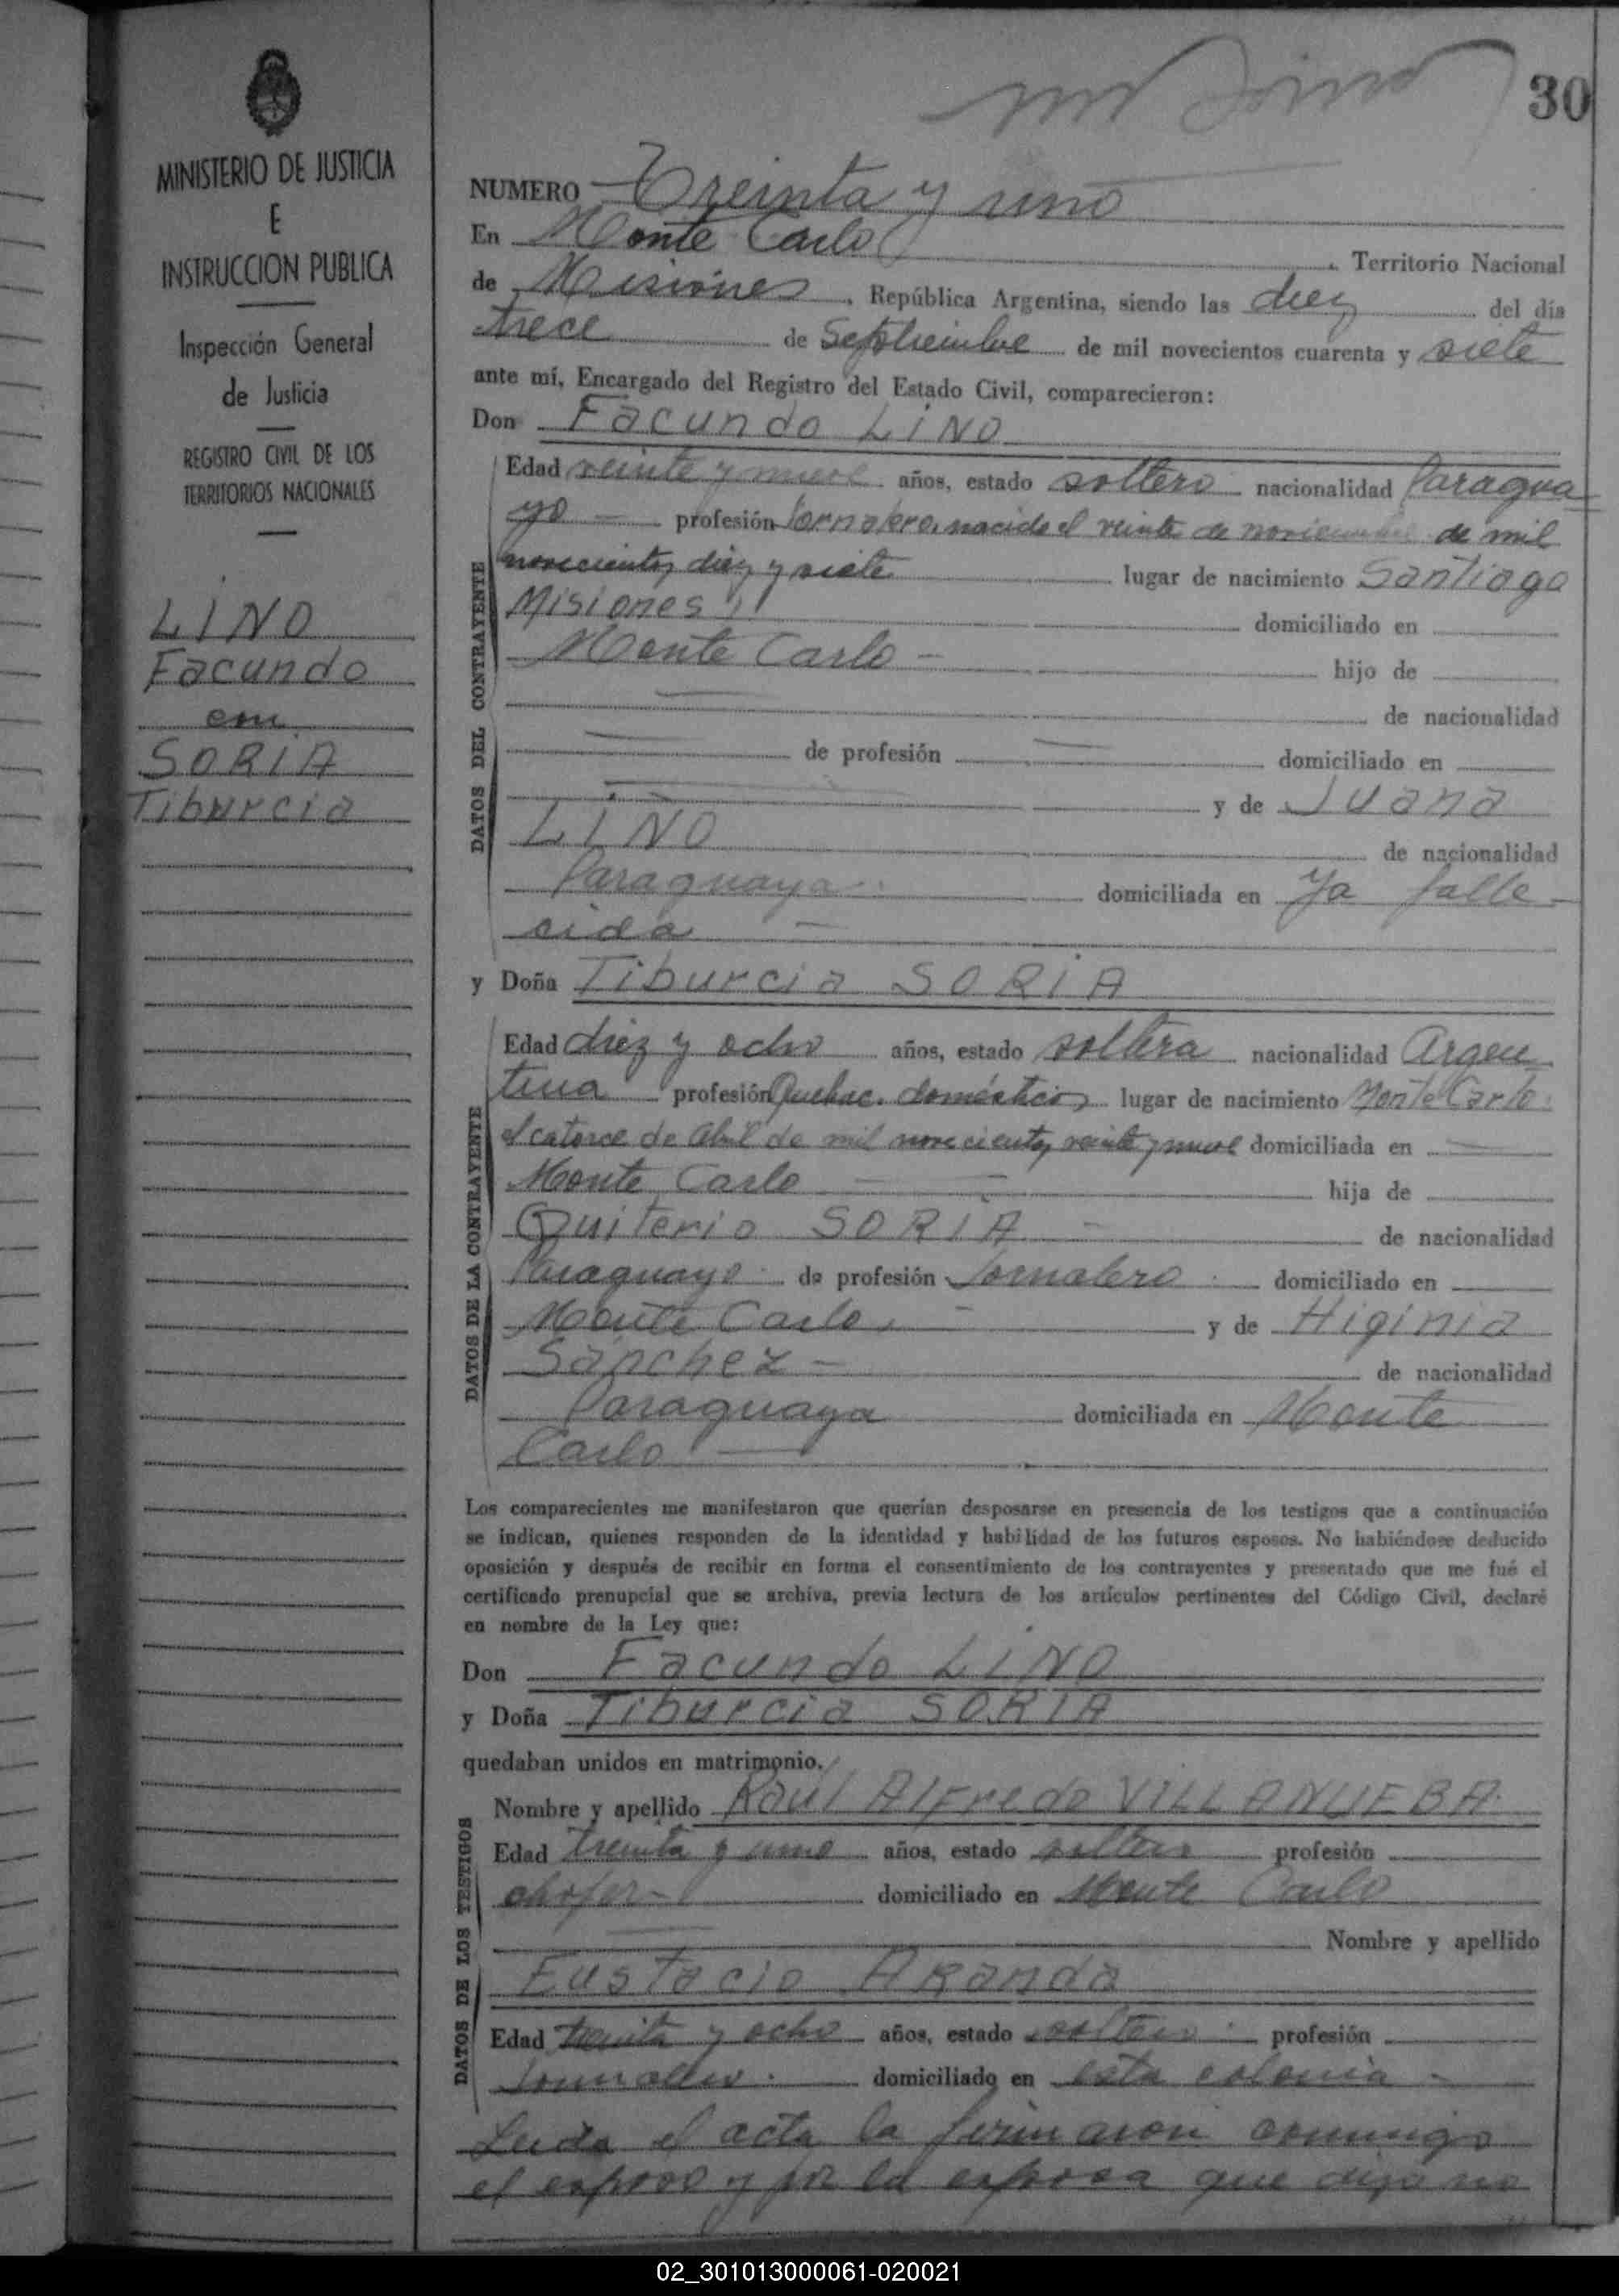 30
MINISTERIO DE JUSTICIA
E
INSTRUCCION PUBLICA
Inspección General
de Justicia
REGISTRO CIVIL DE LOS
TERRITORIOS NACIONALES
LINO
Facundo
con
SORIA
Tiburcia
NUMERO Treinta y uno
En Monte Carlo , Territorio Nacional
de Misiones , República Argentina, siendo las diez del día
trece de Septiembre de mil novecientos cuarenta y siete
ante mí, Encargado del Registro del Estado Civil, comparecieron:
Don Facundo LINO
DATOS DEL CONTRAYENTE
Edad veinte y nueve años, estado soltero nacionalidad Paragua
yo profesión Jornalero, nacido el veinte de noviembre de mil
novecientos diez y siete lugar de nacimiento Santiago
Misiones domiciliado en
Monte Carlo - hijo de
de nacionalidad
de profesión domiciliado en
y de Juana
LINO de nacionalidad
Paraguaya domiciliada en Ya falle-
cida
y Doña Tiburcia SORIA
DATOS DE LA CONTRAYENTE
Edad diez y ocho años, estado soltera nacionalidad Argen
tina profesión Quehac. domésticos lugar de nacimiento Monte Carlo
el catorce de Abril de mil novecientos veinte y nueve domiciliada en
Monte Carlo hija de
Quiterio SORIA - de nacionalidad
Paraguayo de profesión Jornalero domiciliado en
Monte Carlo, y de Higinia
Sánchez - de nacionalidad
Paraguaya domiciliada en Monte
Carlo
Los comparecientes me manifestaron que querían desposarse en presencia de los testigos que a continuación
se indican, quienes responden de la identidad y habilidad de los futuros esposos. No habiéndose deducido
oposición y después de recibir en forma el consentimiento de los contrayentes y presentado que me fué el
certificado prenupcial que se archiva, previa lectura de los artículos pertinentes del Código Civil, declaré
en nombre de la Ley que:
Don Facundo LINO
y Doña Tiburcia SORIA
quedaban unidos en matrimonio.
DATOS DE LOS TESTIGOS
Nombre y apellido Raúl Alfredo VILLANUEBA
Edad treinta y uno años, estado soltero profesión
chofer- domiciliado en Monte Carlo
Nombre y apellido
Eustacio ARanda
Edad treinta y ocho años, estado soltero profesión
Jornalero. domiciliado en esta colonia -
Leida el acta la firmaron conmigo
el esposo y por la esposa que dijo no
02_301013000061-020021